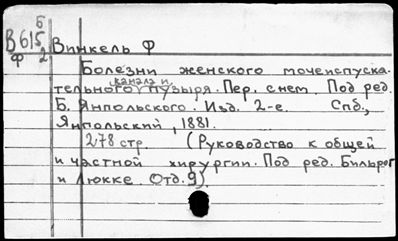 Б
В615 Винкель Ф
Ф 2
Болезни женского мочеиспуска-
канала и
тельного пузыря. Пер. с нем. Под ред.
Б. Янпольского. Изд. 2-е. Спб.,
Янпольский, 1881.
278 стр. (Руководство к общей
и частной хирургии. Под ред. Бильрот
и Люкке. Отд. 9).